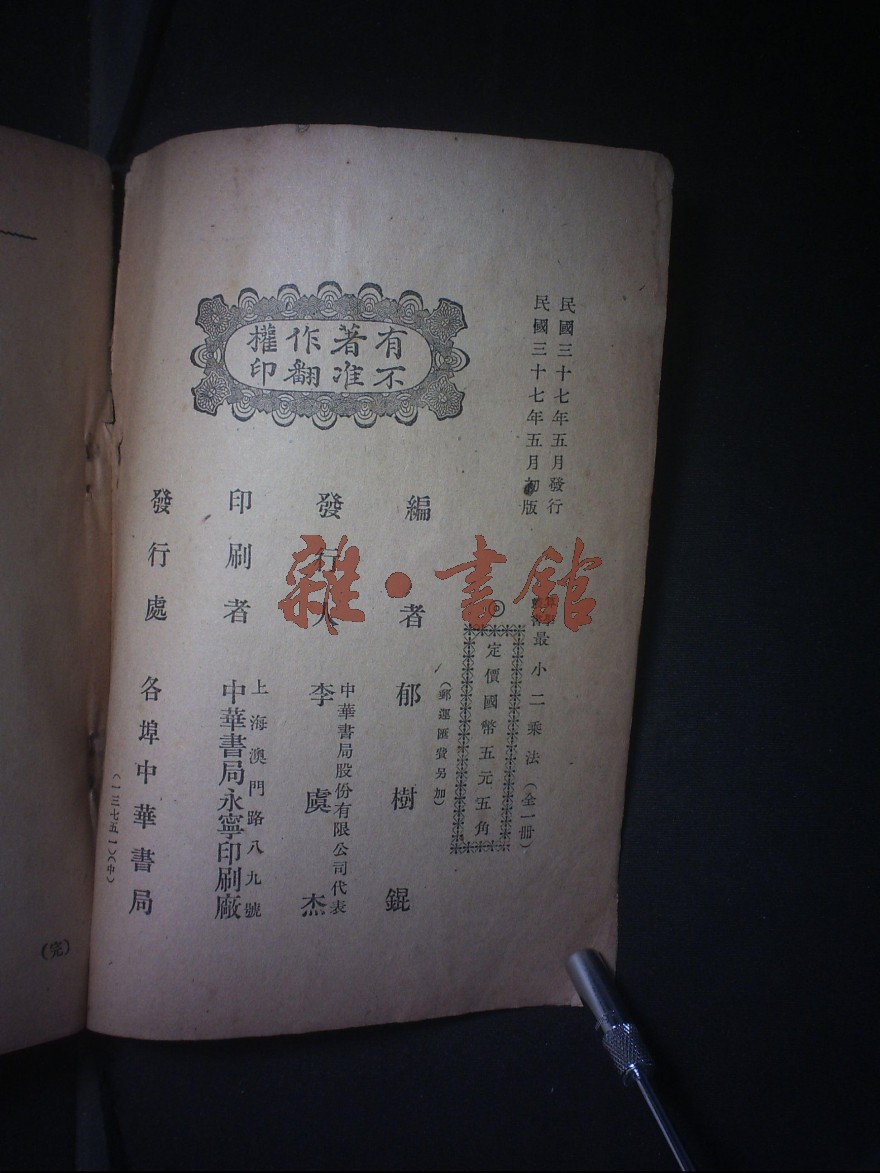 民國三十七年五月發行
民國三十七年五月初版
最小二乘法（全一冊）
定價國幣五元五角
（郵運匯費另加）
有著作權
不准翻印
編者 郁樹錕
發行人 李虞杰
中華書局股份有限公司代表
印刷者
上海澳門路八九號
中華書局永寧印刷廠
發行處 各埠中華書局
（一三七五一）（中）
（完）
雜·書館